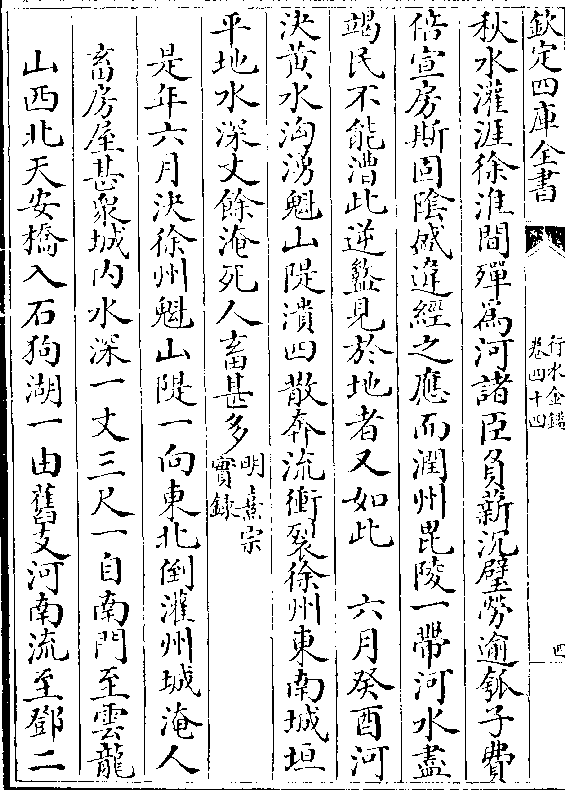 欽定四庫全書
行水金鑑
卷四十四
四
秋水灌涯徐淮間殫為河諸臣負薪沉璧勞逾瓠子費
倍宣房斯固陰盛違經之應而潤州毘陵一帶河水盡
竭民不能漕此逆盭見於地者又如此　六月癸酉河
決黄水洶湧魁山隄潰四散奔流衝裂徐州東南城垣
平地水深丈餘淹死人畜甚多明熹宗實錄
是年六月決徐州魁山隄一向東北倒灌州城淹人
畜房屋甚衆城内水深一丈三尺一自南門至雲龍
山西北天安橋入石狗湖一由舊支河南流至鄧二